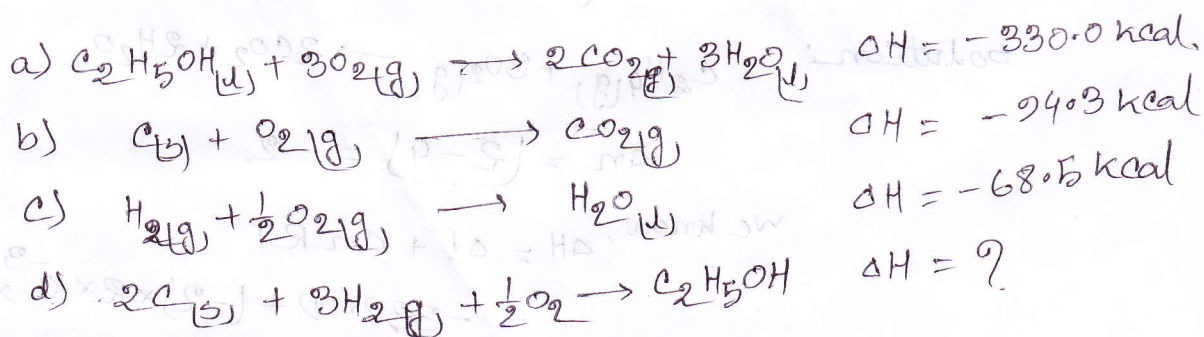 a) C₂H₅OH(l) + 3O₂(g) ⟶ 2CO₂(g) + 3H₂O(l) ΔH = -330.0 kcal.
b) C(s) + O₂(g) ⟶ CO₂(g) ΔH = -94.3 kcal
c) H₂(g) + ½O₂(g) ⟶ H₂O(l) ΔH = -68.5 kcal
d) 2C(s) + 3H₂(g) + ½O₂ ⟶ C₂H₅OH ΔH = ?